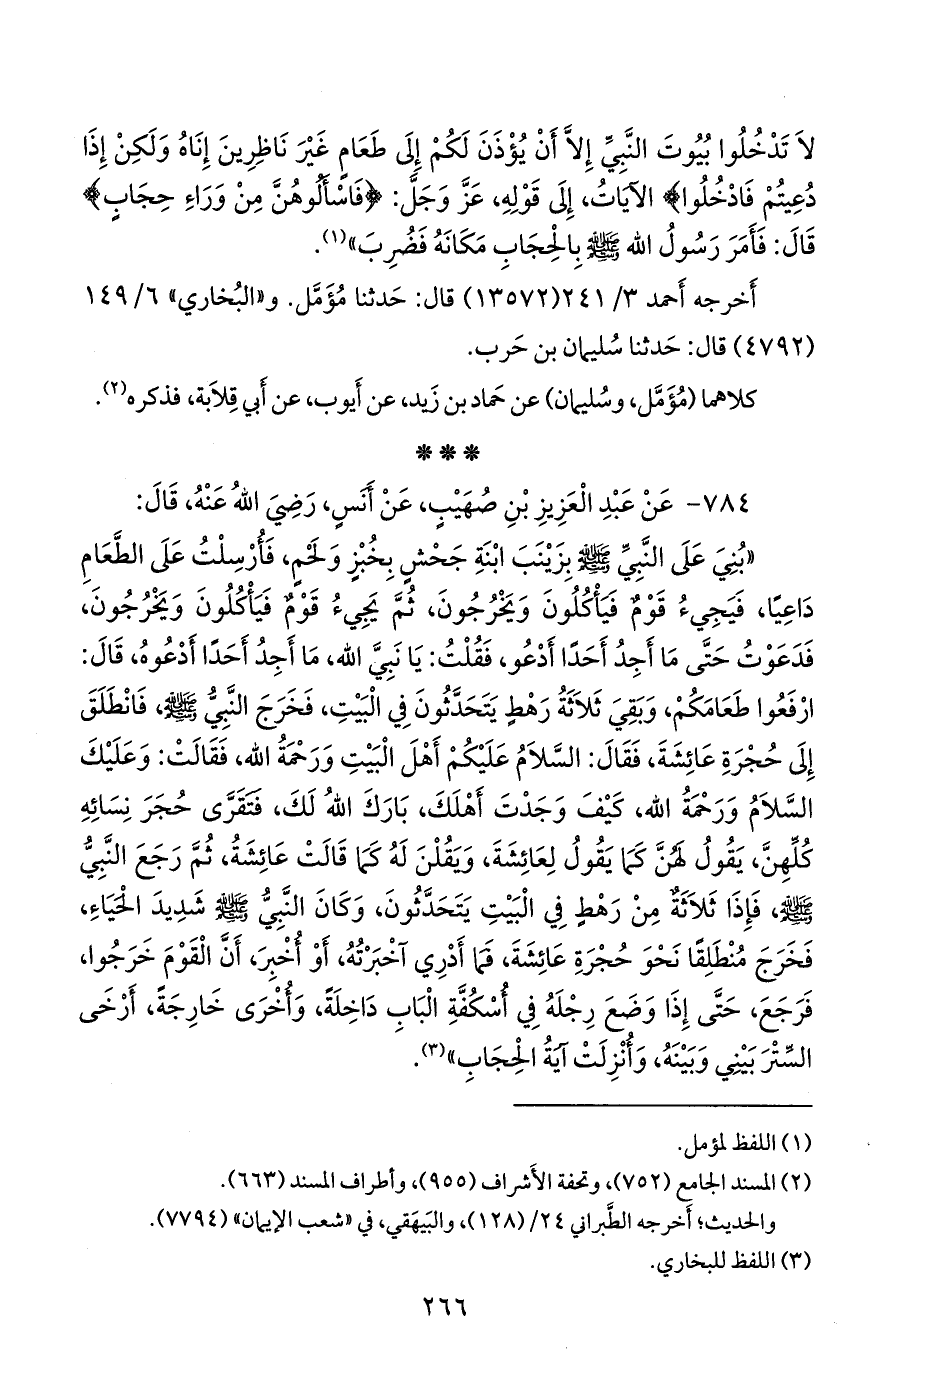 لاَ تَدْخُلُوا بُيُوتَ النَّبِيِّ إِلاَّ أَنْ يُؤْذَنَ لَكُمْ إِلَى طَعَامٍ غَيْرَ نَاظِرِينَ إِنَاهُ وَلَكِنْ إِذَا
دُعِيتُمْ فَادْخُلُوا﴾ الآيَاتُ، إِلَى قَوْلِهِ، عَزَّ وَجَلَّ: ﴿فَاسْأَلُوهُنَّ مِنْ وَرَاءِ حِجَابٍ﴾
قَالَ: فَأَمَرَ رَسُولُ الله ﷺ بِالْحِجَابِ مَكَانَهُ فَضُرِبَ»(١).
أَخرجه أَحمد ٣/ ٢٤١(١٣٥٧٢) قال: حَدثنا مُؤَمَّل. و«البُخاري» ٦/ ١٤٩
(٤٧٩٢) قال: حَدثنا سُليمان بن حَرب.
كلاهما (مُؤَمَّل، وسُليمان) عن حَماد بن زَيد، عن أَيوب، عن أَبي قِلاَبة، فذكره(٢).
* * *
٧٨٤- عَنْ عَبْدِ الْعَزِيزِ بْنِ صُهَيْبٍ، عَنْ أَنَسٍ، رَضِيَ اللهُ عَنْهُ، قَالَ:
«بُنِيَ عَلَى النَّبِيِّ ﷺ بِزَيْنَبَ ابْنَةِ جَحْشٍ بِخُبْزٍ وَلَحْمٍ، فَأُرْسِلْتُ عَلَى الطَّعَامِ
دَاعِيًا، فَيَجِيءُ قَوْمٌ فَيَأْكُلُونَ وَيَخْرُجُونَ، ثُمَّ يَجِيءُ قَوْمٌ فَيَأْكُلُونَ وَيَخْرُجُونَ،
فَدَعَوْتُ حَتَّى مَا أَجِدُ أَحَدًا أَدْعُو، فَقُلْتُ: يَا نَبِيَّ الله، مَا أَجِدُ أَحَدًا أَدْعُوهُ، قَالَ:
ارْفَعُوا طَعَامَكُمْ، وَبَقِيَ ثَلاَثَةُ رَهْطٍ يَتَحَدَّثُونَ فِي الْبَيْتِ، فَخَرَجَ النَّبِيُّ ﷺ، فَانْطَلَقَ
إِلَى حُجْرَةِ عَائِشَةَ، فَقَالَ: السَّلاَمُ عَلَيْكُمْ أَهْلَ الْبَيْتِ وَرَحْمَةُ الله، فَقَالَتْ: وَعَلَيْكَ
السَّلاَمُ وَرَحْمَةُ الله، كَيْفَ وَجَدْتَ أَهْلَكَ، بَارَكَ اللهُ لَكَ، فَتَقَرَّى حُجَرَ نِسَائِهِ
كُلِّهِنَّ، يَقُولُ لَهُنَّ كَمَا يَقُولُ لِعَائِشَةَ، وَيَقُلْنَ لَهُ كَمَا قَالَتْ عَائِشَةُ، ثُمَّ رَجَعَ النَّبِيُّ
ﷺ، فَإِذَا ثَلاَثَةٌ مِنْ رَهْطٍ فِي الْبَيْتِ يَتَحَدَّثُونَ، وَكَانَ النَّبِيُّ ﷺ شَدِيدَ الْحَيَاءِ،
فَخَرَجَ مُنْطَلِقًا نَحْوَ حُجْرَةِ عَائِشَةَ، فَمَا أَدْرِي آخْبَرْتُهُ، أَوْ أُخْبِرَ، أَنَّ الْقَوْمَ خَرَجُوا،
فَرَجَعَ، حَتَّى إِذَا وَضَعَ رِجْلَهُ فِي أُسْكُفَّةِ الْبَابِ دَاخِلَةً، وَأُخْرَى خَارِجَةً، أَرْخَى
السِّتْرَ بَيْنِي وَبَيْنَهُ، وَأُنْزِلَتْ آيَةُ الْحِجَابِ»(٣).
(١) اللفظ لمؤمل.
(٢) المسند الجامع (٧٥٢)، وتحفة الأَشراف (٩٥٥)، وأطراف المسند (٦٦٣).
والحديث؛ أَخرجه الطَّبراني ٢٤/ (١٢٨)، والبَيهَقي، في «شعب الإيمان» (٧٧٩٤).
(٣) اللفظ للبخاري.
٢٦٦